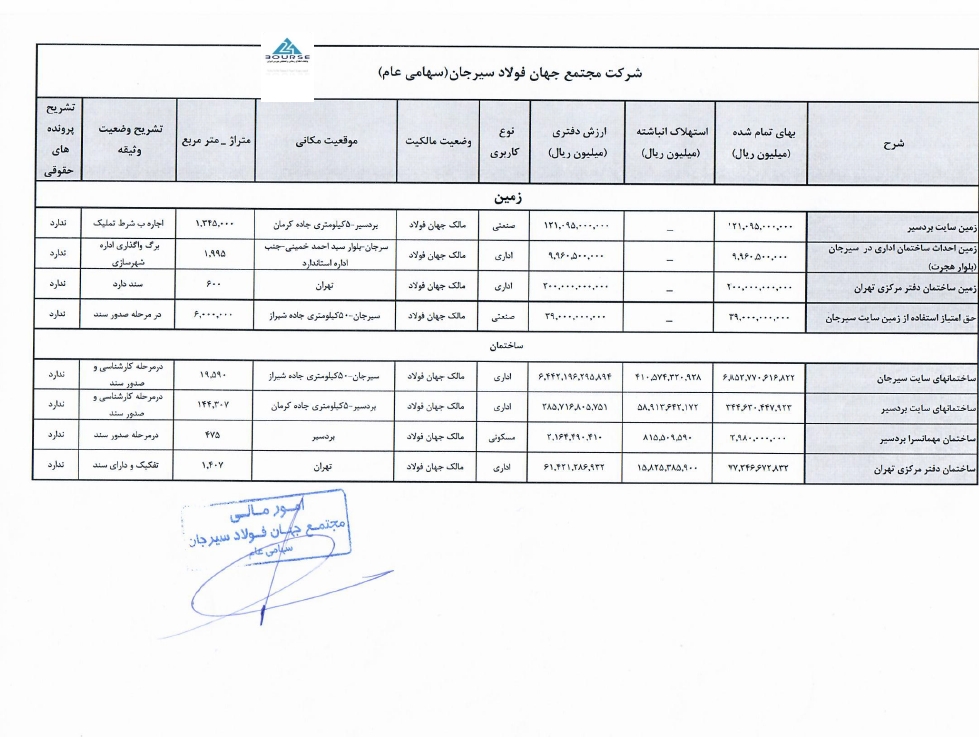 BOURSE
شرکت مجتمع جهان فولاد سیرجان(سهامی عام)
شرح | بهای تمام شده (میلیون ریال) | استهلاک انباشته (میلیون ریال) | ارزش دفتری (میلیون ریال) | نوع کاربری | وضعیت مالکیت | موقعیت مکانی | متراژ _ متر مربع | تشریح وضعیت وثیقه | تشریح پرونده های حقوقی
زمین
زمین سایت بردسیر | ۱۲۱,۰۹۵,۰۰۰,۰۰۰ | _ | ۱۲۱,۰۹۵,۰۰۰,۰۰۰ | صنعتی | مالک جهان فولاد | بردسیر-۵کیلومتری جاده کرمان | ۱,۳۴۵,۰۰۰ | اجاره ب شرط تملیک | ندارد
زمین احداث ساختمان اداری در سیرجان (بلوار هجرت) | ۹,۹۶۰,۵۰۰,۰۰۰ | _ | ۹,۹۶۰,۵۰۰,۰۰۰ | اداری | مالک جهان فولاد | سرجان-بلوار سید احمد خمینی-جنب اداره استاندارد | ۱,۹۹۵ | برگ واگذاری اداره شهرسازی | ندارد
زمین ساختمان دفتر مرکزی تهران | ۲۰۰,۰۰۰,۰۰۰,۰۰۰ | _ | ۲۰۰,۰۰۰,۰۰۰,۰۰۰ | اداری | مالک جهان فولاد | تهران | ۶۰۰ | سند دارد | ندارد
حق امتیاز استفاده از زمین سایت سیرجان | ۳۹,۰۰۰,۰۰۰,۰۰۰ | _ | ۳۹,۰۰۰,۰۰۰,۰۰۰ | صنعتی | مالک جهان فولاد | سیرجان-۵۰کیلومتری جاده شیراز | ۶,۰۰۰,۰۰۰ | در مرحله صدور سند | ندارد
ساختمان
ساختمانهای سایت سیرجان | ۶,۸۵۲,۷۷۰,۶۱۶,۸۲۲ | ۴۱۰,۵۷۴,۳۲۰,۹۲۸ | ۶,۴۴۲,۱۹۶,۲۹۵,۸۹۴ | اداری | مالک جهان فولاد | سیرجان-۵۰کیلومتری جاده شیراز | ۱۹,۵۹۰ | درمرحله کارشناسی و صدور سند | ندارد
ساختمانهای سایت بردسیر | ۳۴۴,۶۳۰,۴۴۷,۹۲۳ | ۵۸,۹۱۳,۶۴۲,۱۷۲ | ۲۸۵,۷۱۶,۸۰۵,۷۵۱ | اداری | مالک جهان فولاد | بردسیر-۵کیلومتری جاده کرمان | ۱۴۴,۳۰۷ | درمرحله کارشناسی و صدور سند | ندارد
ساختمان مهمانسرا بردسیر | ۲,۹۸۰,۰۰۰,۰۰۰ | ۸۱۵,۵۰۹,۵۹۰ | ۲,۱۶۴,۴۹۰,۴۱۰ | مسکونی | مالک جهان فولاد | بردسیر | ۴۷۵ | درمرحله صدور سند | ندارد
ساختمان دفتر مرکزی تهران | ۷۷,۲۴۶,۶۷۲,۸۳۲ | ۱۵,۸۲۵,۳۸۵,۹۰۰ | ۶۱,۴۲۱,۲۸۶,۹۳۲ | اداری | مالک جهان فولاد | تهران | ۱,۴۰۷ | تفکیک و دارای سند | ندارد
امور مالی
مجتمع جهان فولاد سیرجان
سهامی عام